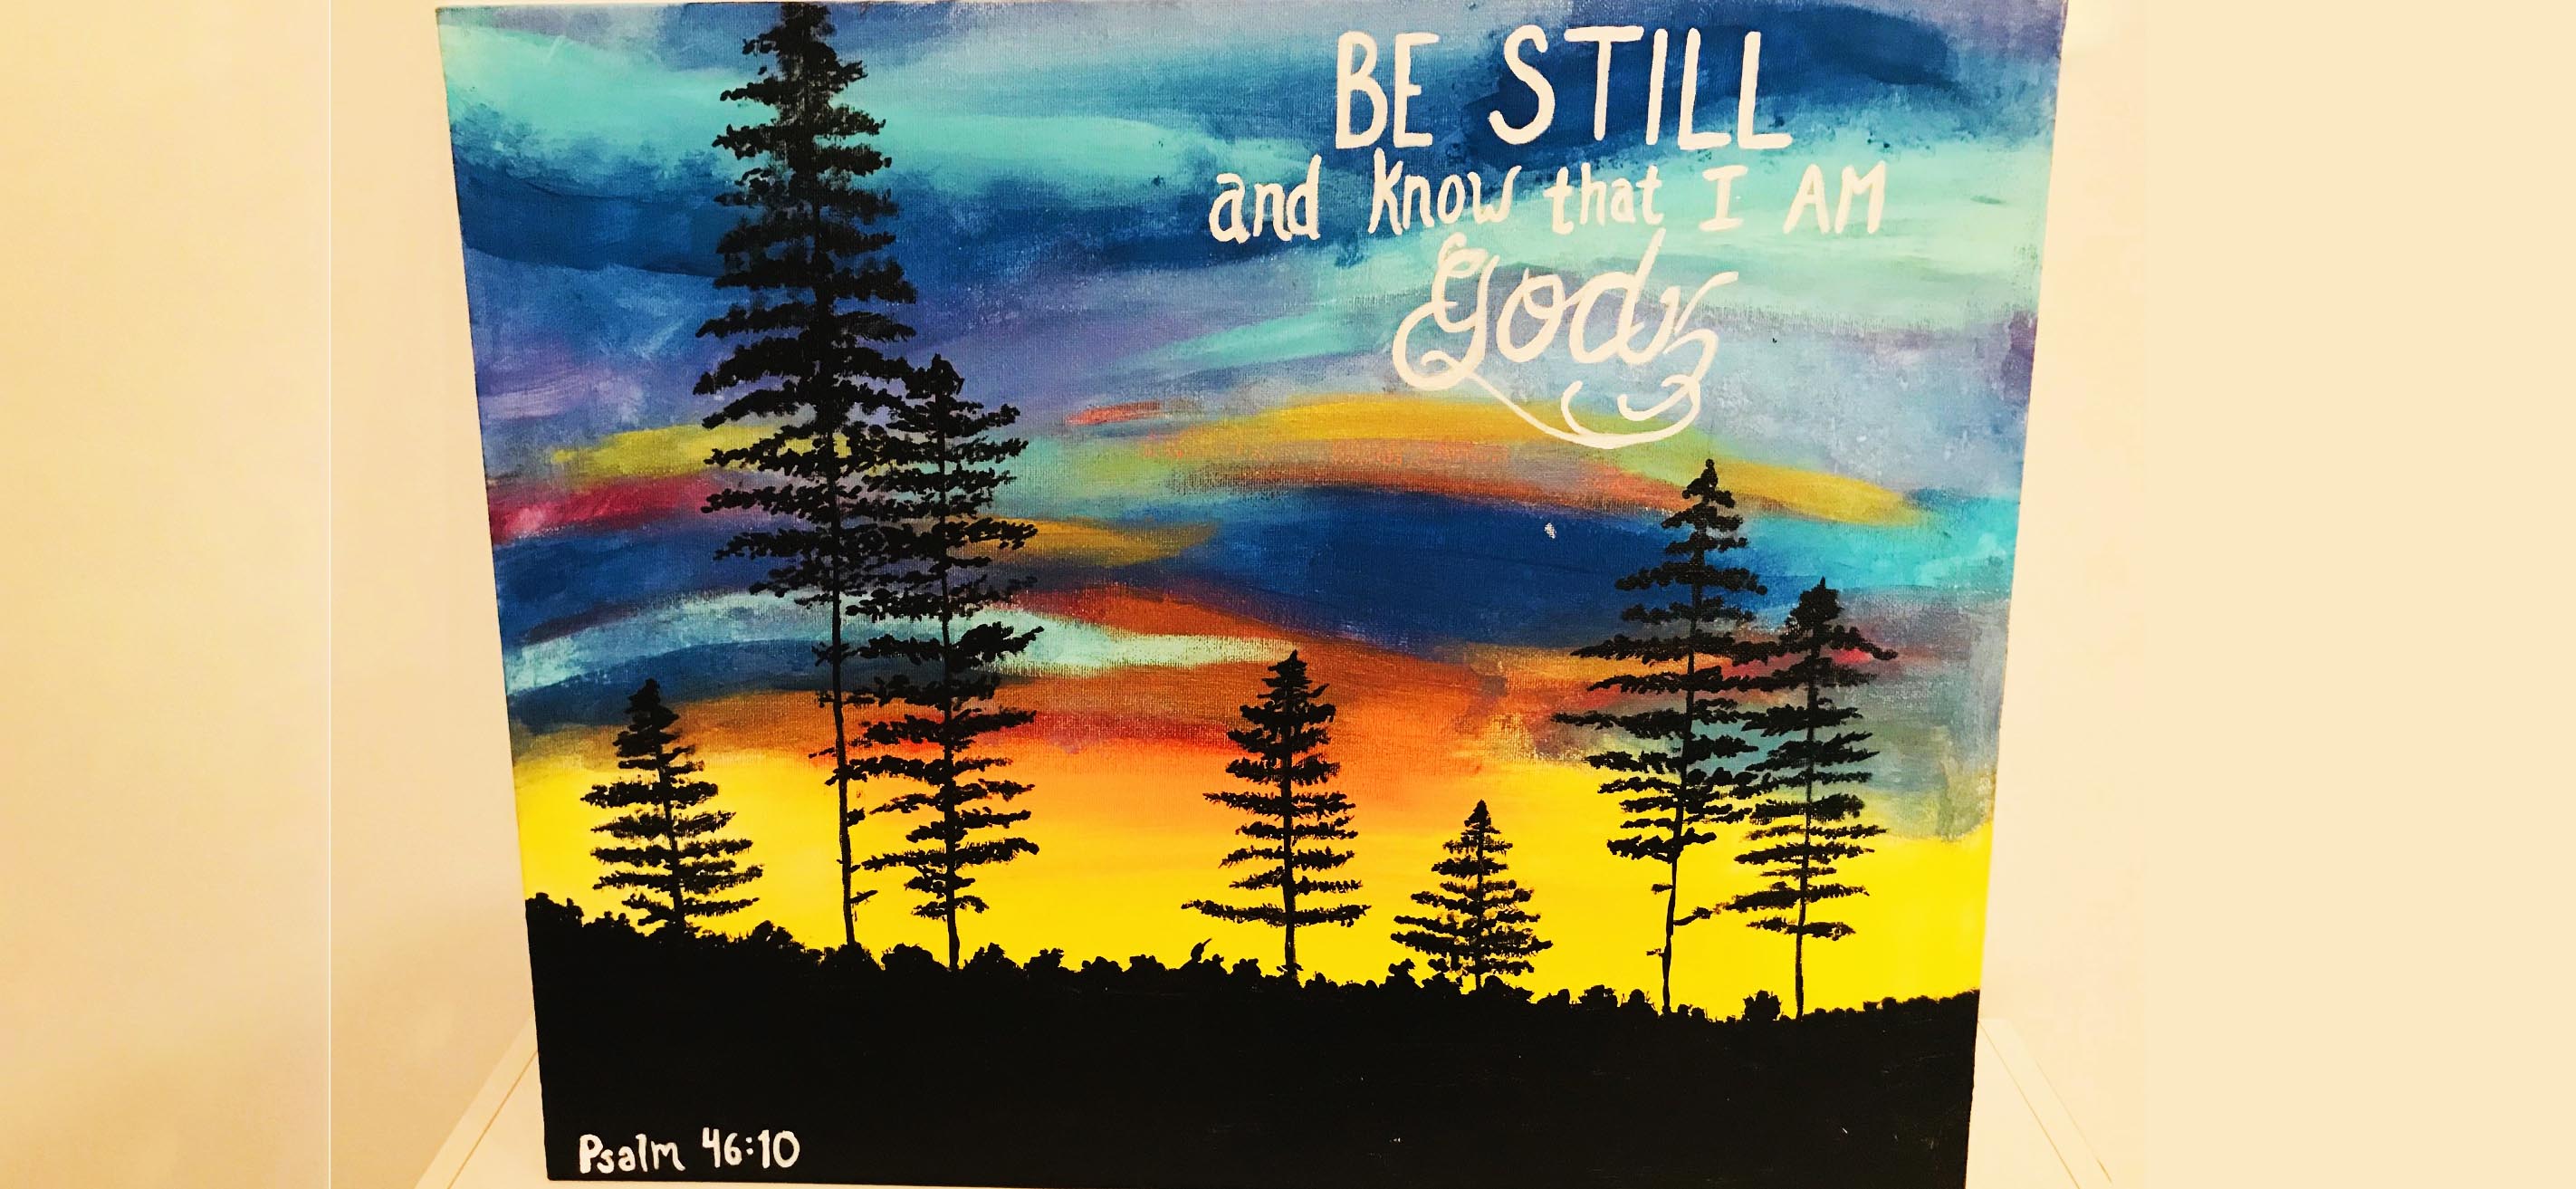 BE STILL
and know that I AM
God
Psalm 46:10